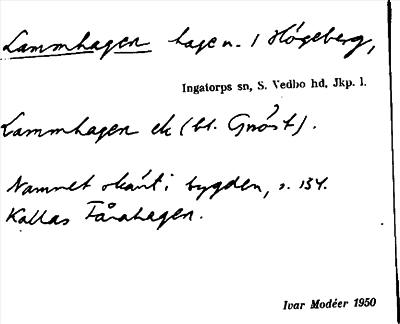 Lammhagen hage n. i Högeberg,
Ingatorps sn, S. Vedbo hd, Jkp. l.
Lammhagen ek (bl. Gnöst).
Namnet okänt i bygden, s. 134.
Kallas Fårahagen.
Ivar Modéer 1950